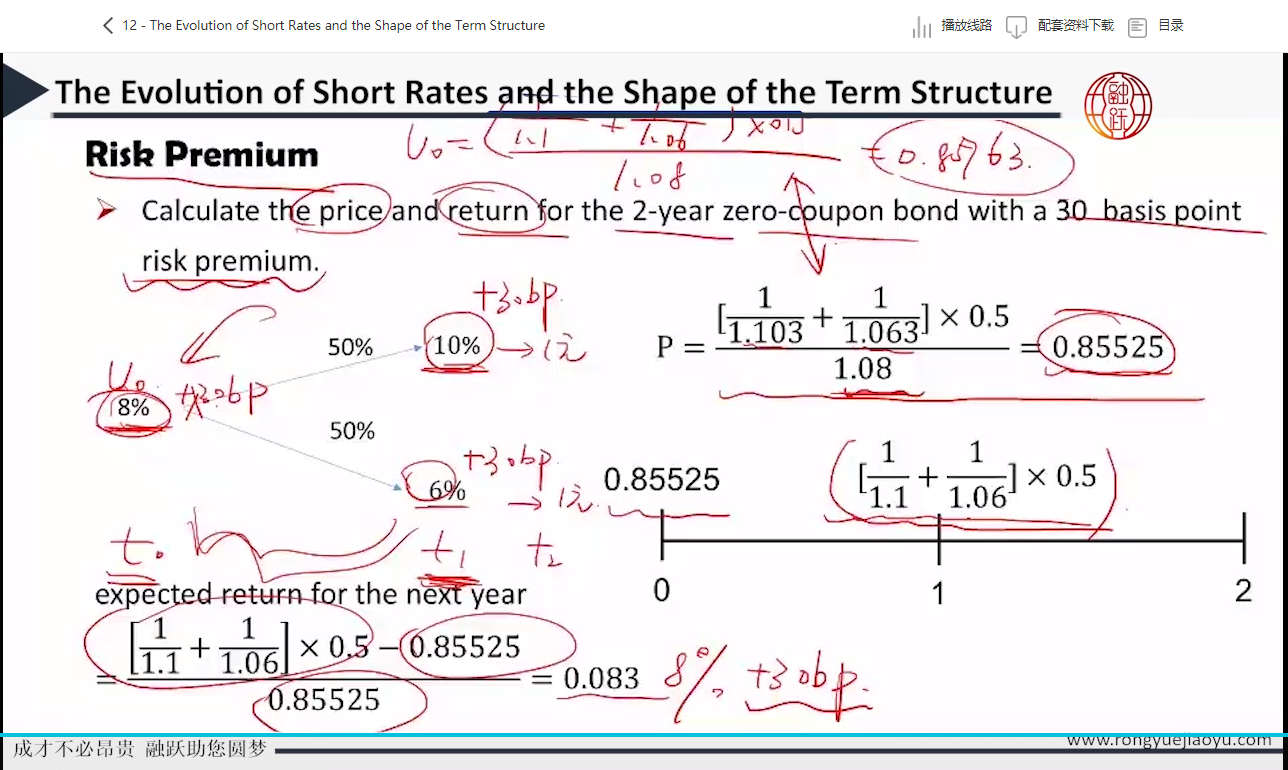 12 - The Evolution of Short Rates and the Shape of the Term Structure
播放线路 配套资料下载 目录
The Evolution of Short Rates and the Shape of the Term Structure
融跃
Risk Premium
U₀ = ( 1/1.1 + 1/1.06 ) × 0.5 / 1.08 = 0.85763.
➢ Calculate the price and return for the 2-year zero-coupon bond with a 30 basis point
risk premium.
+30bp.
50% 10% → 1元
U₀
8% +30bp
50%
+30bp.
6% → 1元
t₀ t₁ t₂
P = [1/1.103 + 1/1.063] × 0.5 / 1.08 = 0.85525
0.85525 [1/1.1 + 1/1.06] × 0.5
0 1 2
expected return for the next year
= [1/1.1 + 1/1.06] × 0.5 − 0.85525 / 0.85525 = 0.083 8% +30bp.
成才不必昂贵 融跃助您圆梦
www.rongyuejiaoyu.com